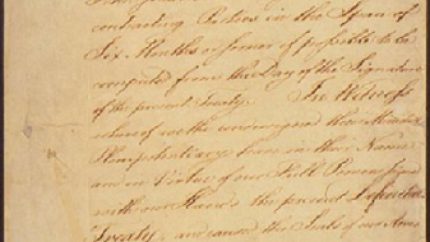 contracting Parties in the Space of
Six Months or sooner if possible to be
computed from the Day of the Signature
of the present Treaty. In Witness
whereof we the undersigned their Ministers
Plenipotentiary have in their Name
and in Virtue of our Full Powers signed
with our Hands the present Definitive
Treaty, and caused the Seals of our Arms